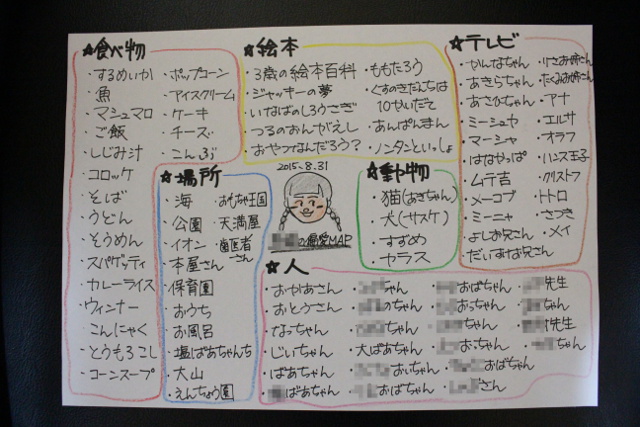 ☆食べ物
・するめいか
・魚
・マシュマロ
・ご飯
・しじみ汁
・コロッケ
・そば
・うどん
・そうめん
・スパゲッティ
・カレーライス
・ウィンナー
・こんにゃく
・とうもろこし
・コーンスープ
・ポップコーン
・アイスクリーム
・ケーキ
・チーズ
・こんぶ
☆絵本
・3歳の絵本百科
・ジャッキーの夢
・いなばのしろうさぎ
・つるのおんがえし
・おやつなんだろう?
・ももたろう
・くすのきだんちは
10かいだて
・あんぱんまん
・ノンタンといっしょ
☆テレビ
・かんなちゃん
・あきらちゃん
・あさひちゃん
・ミーシュヤ
・マーシャ
・はなかっぱ
・ムテ吉
・メーコブ
・ミーニャ
・よしお兄さん
・だいすけお兄さん
・りさお姉さん
・たくみお姉さん
・アナ
・エルサ
・オラフ
・ハンス王子
・クリストフ
・トトロ
・さつき
・メイ
☆場所
・海
・公園
・イオン
・本屋さん
・保育園
・おうち
・お風呂
・塩ばあちゃんち
・大山
・えんちょう園
・おもちゃ王国
・天満屋
・歯医者
さん
2015.8.31
の偏愛MAP
☆動物
・猫(あきちゃん)
・犬(サスケ)
・すずめ
・カラス
☆人
・おかあさん
・おとうさん
・なっちゃん
・じいちゃん
・ばあちゃん
ばあちゃん
ちゃん
のちゃん
ちゃん
・大ばあちゃん
おいちゃん
おばちゃん
おばちゃん
おっちゃん
ちゃん
おにちゃん
おばちゃん
さん
先生
ちゃん
先生
ちゃん